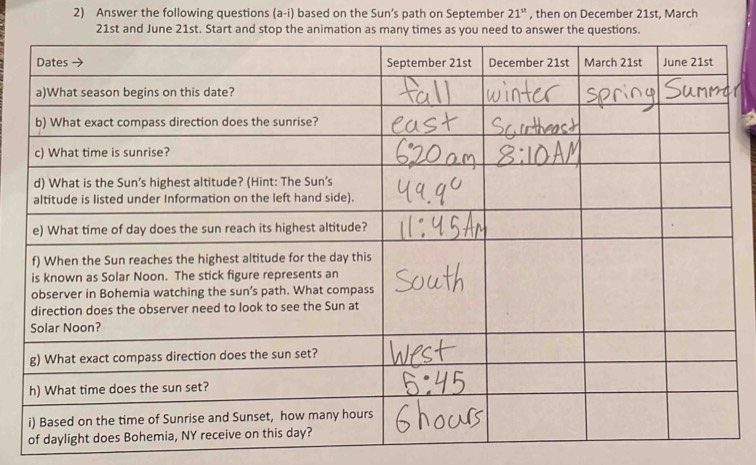 2) Answer the following questions (a-i) based on the Sun's path on September 21st , then on December 21st, March
21st and June 21st. Start and stop the animation as many times as you need to answer the questions.
Dates → September 21st December 21st March 21st June 21st
a)What season begins on this date? fall winter spring Summer
b) What exact compass direction does the sunrise? east
c) What time is sunrise? 6:20 am 8:10 AM
d) What is the Sun's highest altitude? (Hint: The Sun's
altitude is listed under Information on the left hand side). 49.9°
e) What time of day does the sun reach its highest altitude? 11:45 AM
f) When the Sun reaches the highest altitude for the day this
is known as Solar Noon. The stick figure represents an
observer in Bohemia watching the sun's path. What compass
direction does the observer need to look to see the Sun at
Solar Noon?
South
g) What exact compass direction does the sun set? West
h) What time does the sun set? 5:45
i) Based on the time of Sunrise and Sunset, how many hours
of daylight does Bohemia, NY receive on this day?
6 hours